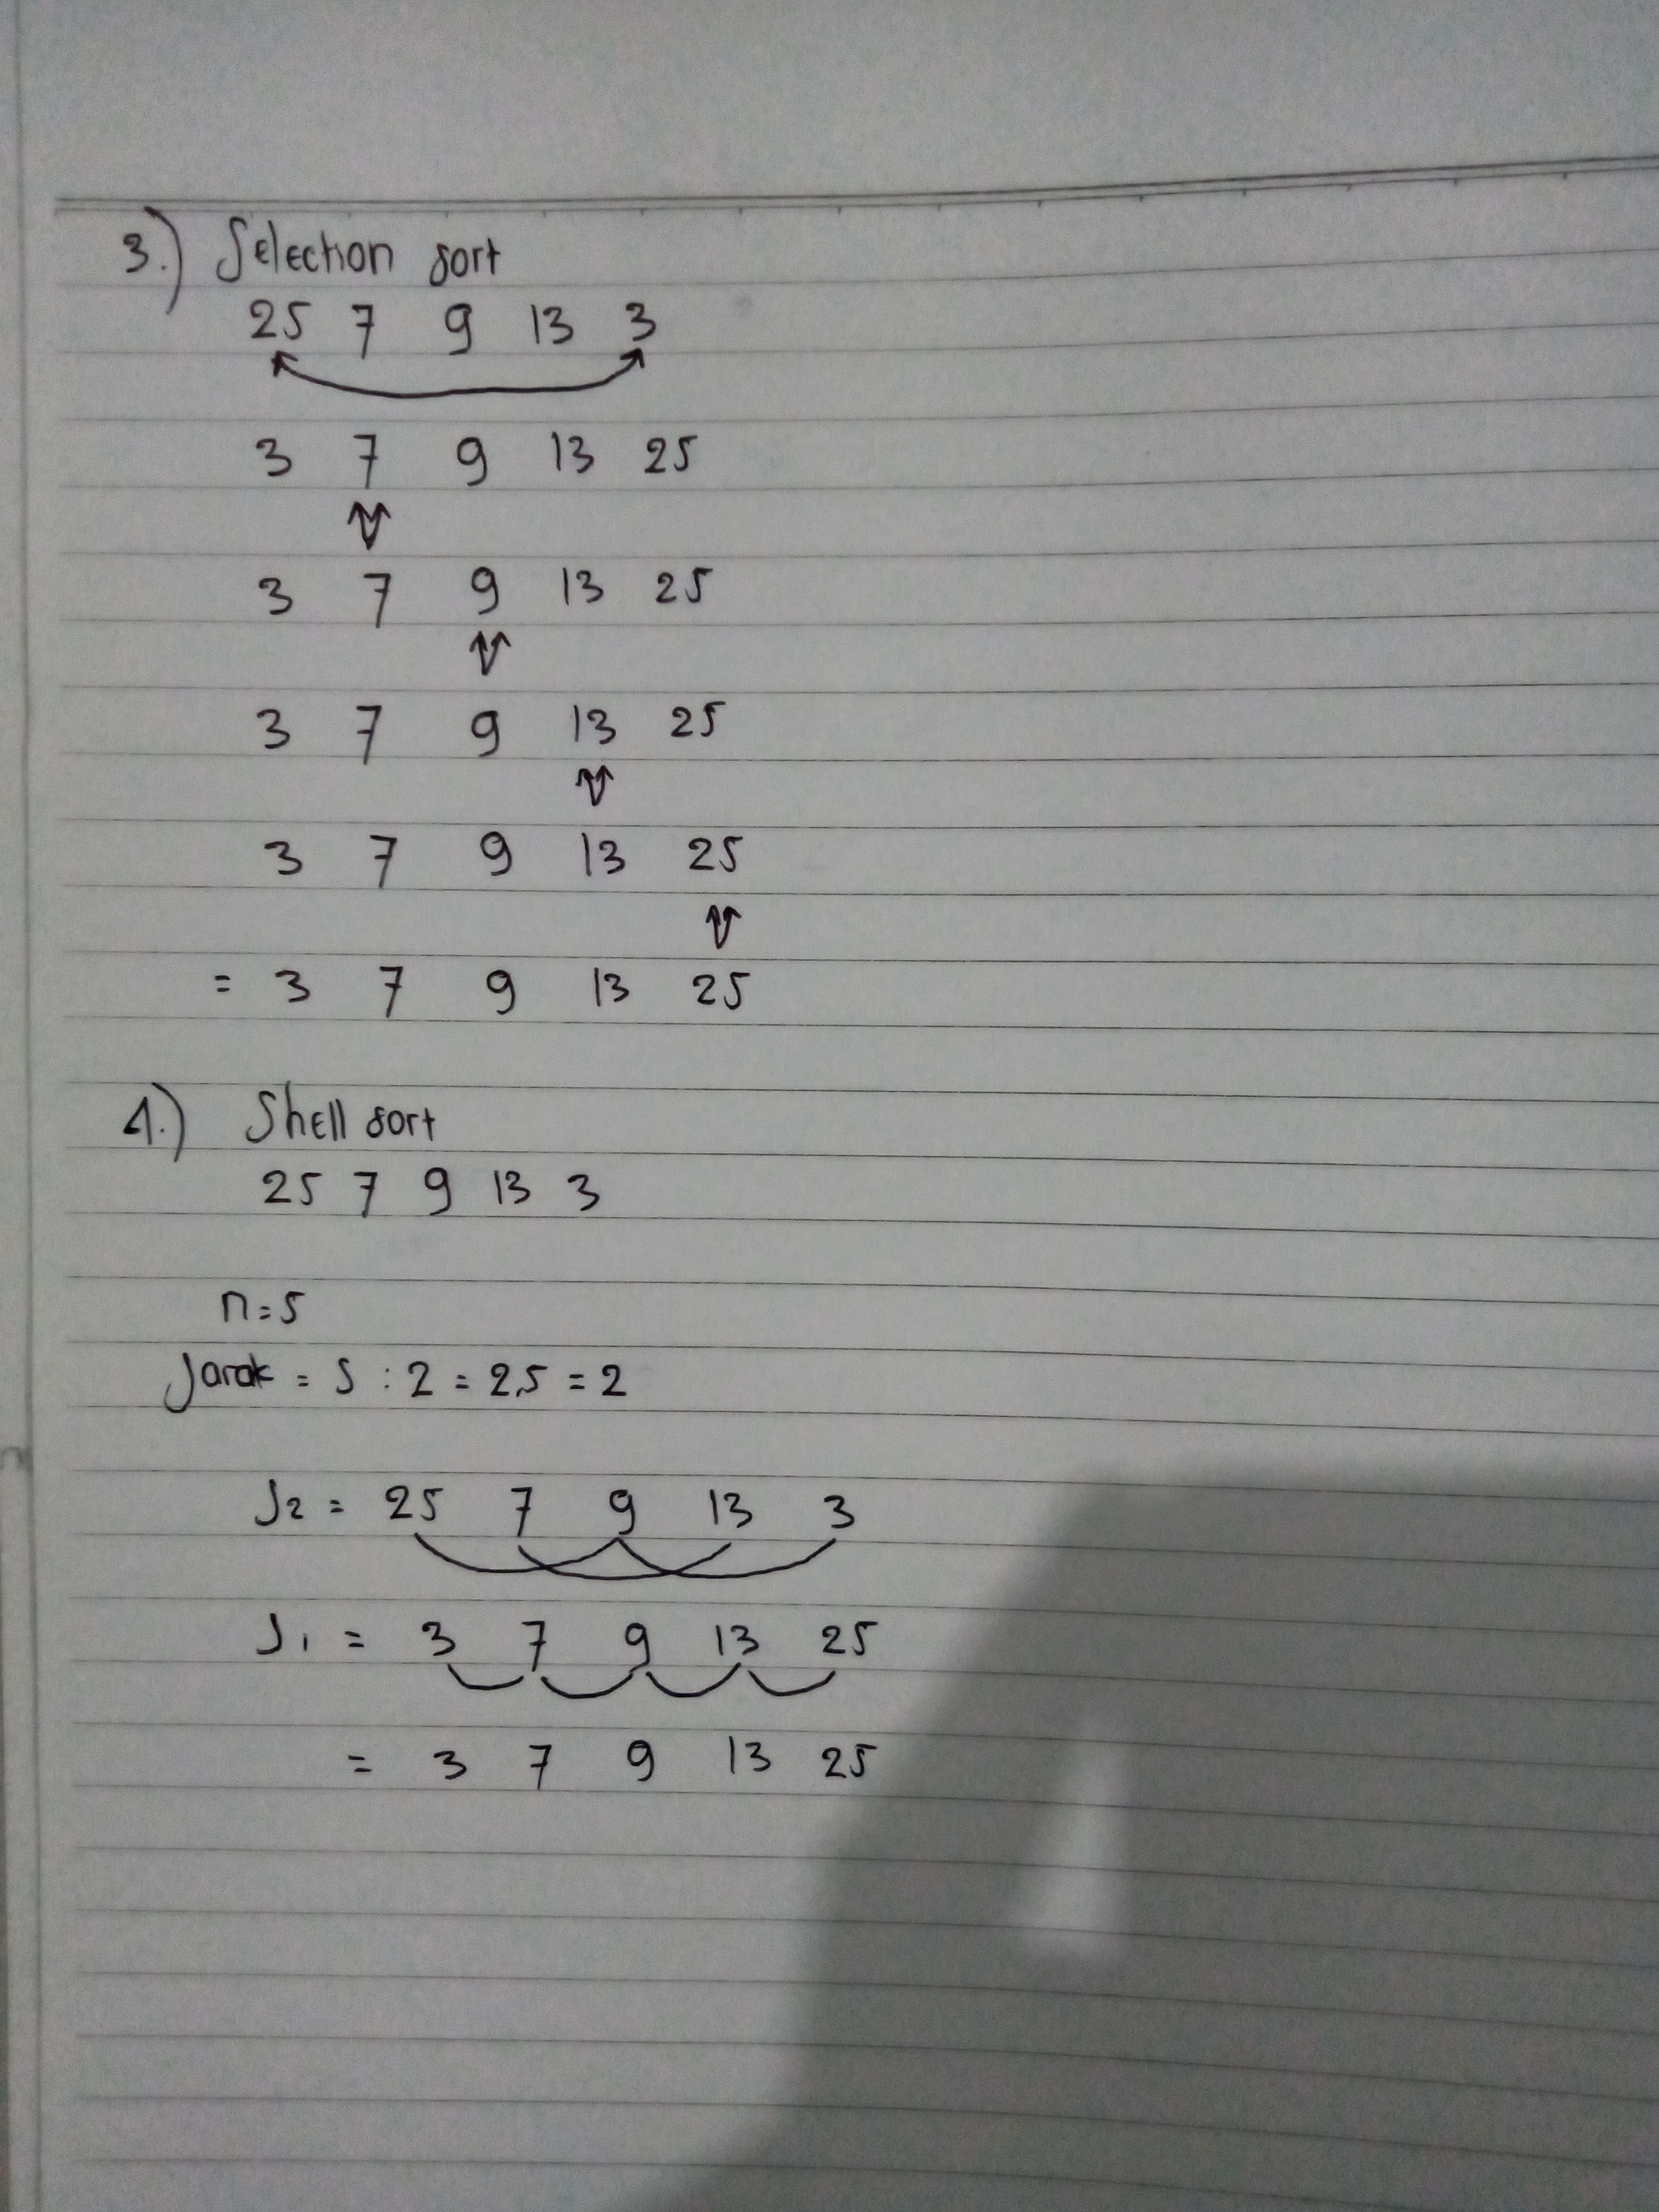 3.) Selection sort
25 7 9 13 3
3 7 9 13 25
3 7 9 13 25
3 7 9 13 25
3 7 9 13 25
= 3 7 9 13 25
4.) Shell sort
25 7 9 13 3
n = 5
Jarak = 5 : 2 = 2,5 = 2
J2 = 25 7 9 13 3
J1 = 3 7 9 13 25
= 3 7 9 13 25